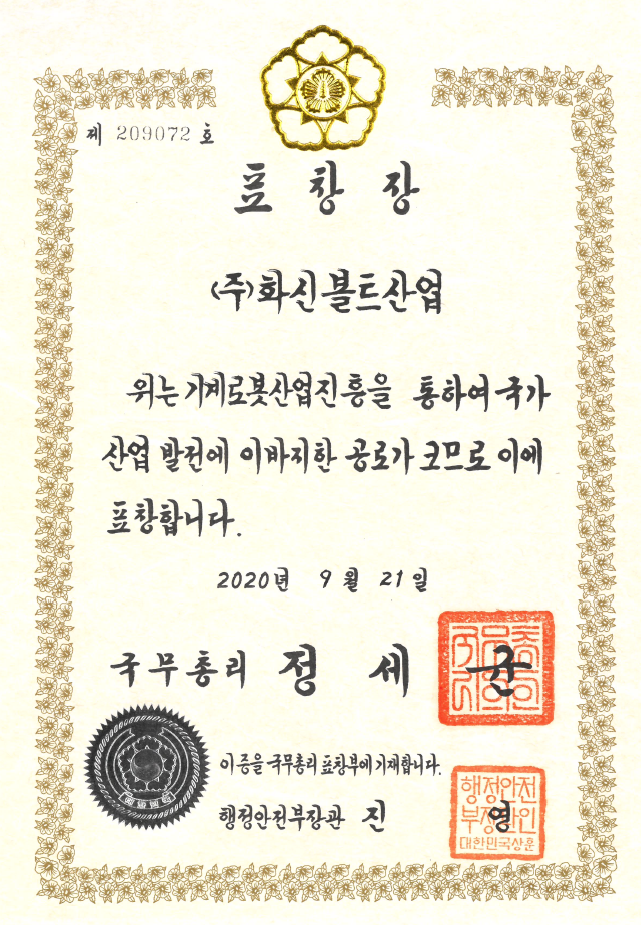 제 209072 호
표 창 장
(주)화신볼트산업
위는 기계로봇산업진흥을 통하여 국가
산업 발전에 이바지한 공로가 크므로 이에
표창합니다.
2020년 9월 21일
국무총리 정 세 균
이 증을 국무총리 표창부에 기재합니다.
행정안전부장관 진 영
행정안전
부장관인
대한민국상훈